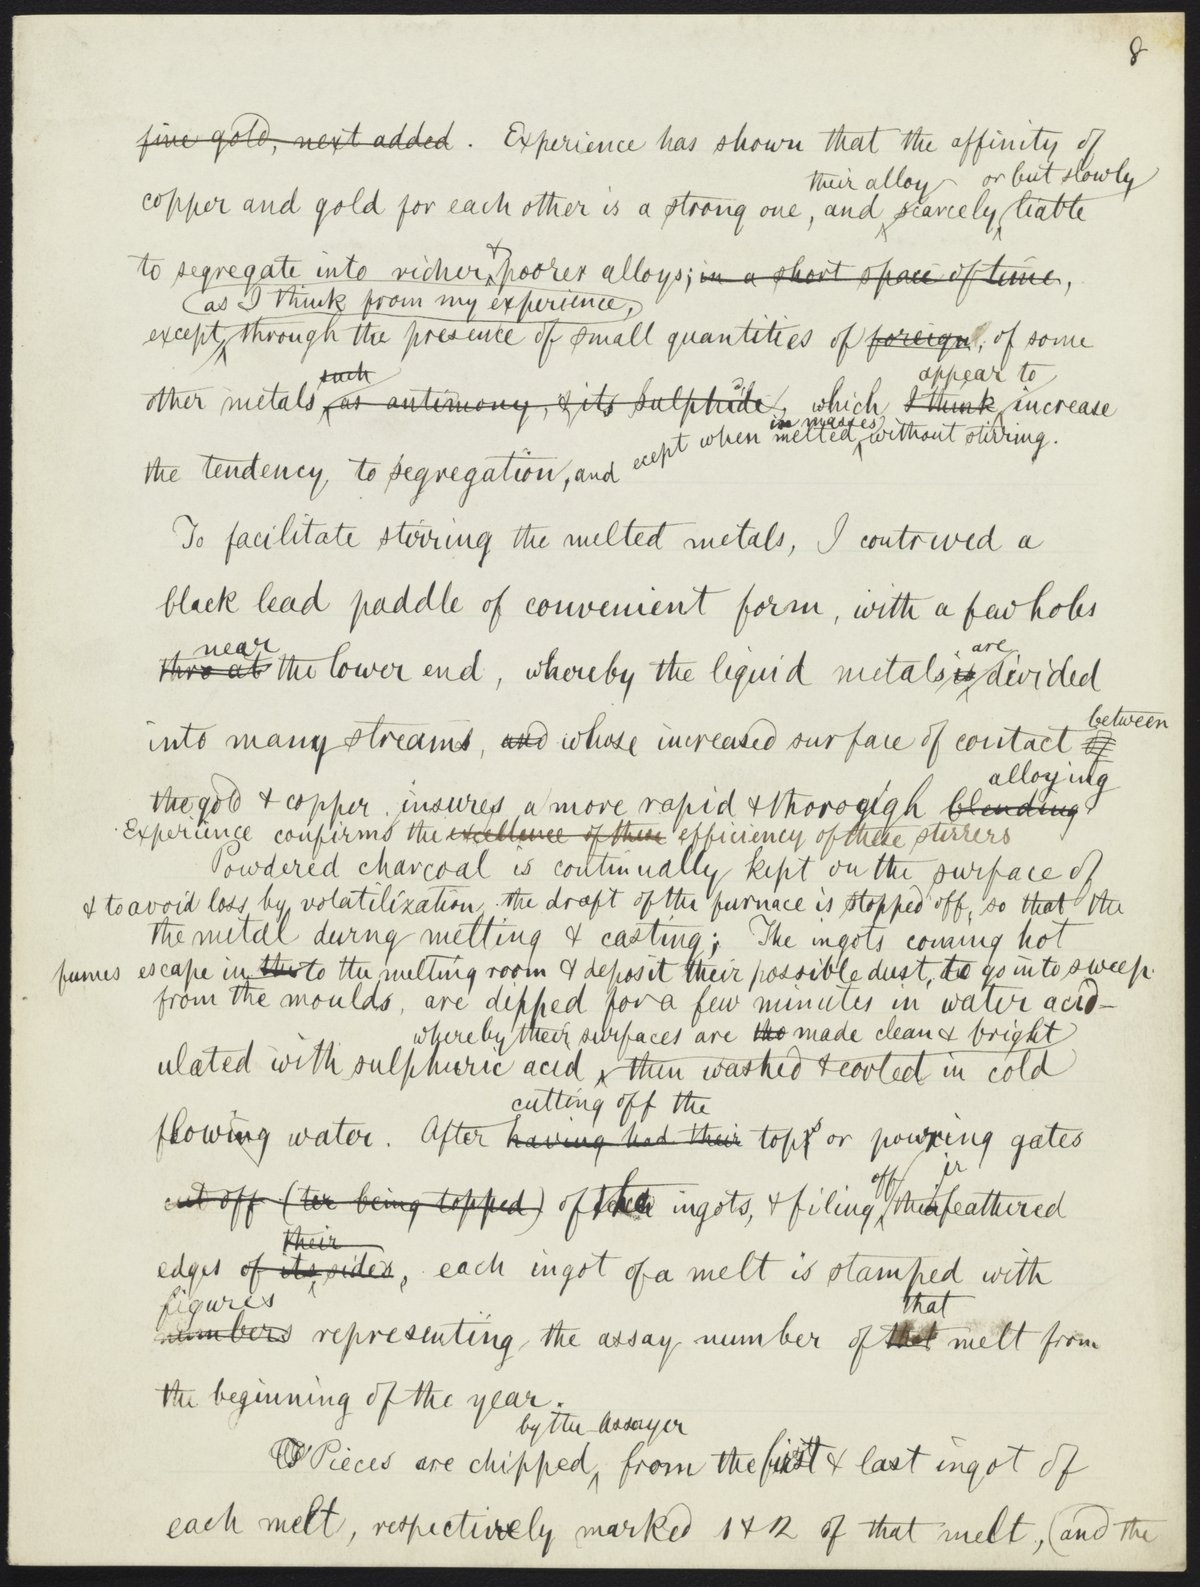 8
fine gold, next added. Experience has shown that the affinity of
their alloy or but slowly
copper and gold for each other is a strong one, and scarcely liable
to segregate into richer & poorer alloys; in a short space of time,
(as I think from my experience,)
except through the presence of small quantities of foreign, of some
such appear to
other metals, as antimony, & its Sulphide, which I think increase
in masses
ecept when melted without stirring.
the tendency to segregation, and
To facilitate stirring the melted metals, I contrived a
black lead paddle of convenient form, with a few holes
near are
thro at the lower end, whereby the liquid metals is divided
between
into many streams, and whose increased surface of contact of
alloying
the gold & copper insures a more rapid & thorough blending
Experience confirms the excellence of these efficiency of these stirrers
Powdered charcoal is continually kept on the surface of
& to avoid loss by volatilization, the draft of the furnace is stopped off, so that the
the metal durng melting & casting; The ingots coming hot
fumes escape in the to the melting room & deposit their possible dust, to go into sweep.
from the moulds, are dipped for a few minutes in water acid-
whereby their surfaces are tho made clean & bright
ulated with sulphuric acid, then washed & cooled in cold
cutting off the
flowing water. After having had their tops or pouring gates
off ir
cut off (ter being topped) of the ingots, & filing their feathered
their
edges of its sides, each ingot of a melt is stamped with
figures that
numbers representing the assay number of that melt from
the beginning of the year.
by the Assayer
Pieces are chipped, from the first & last ingot of
each melt, respectively marked 1 & 2 of that melt, (and the